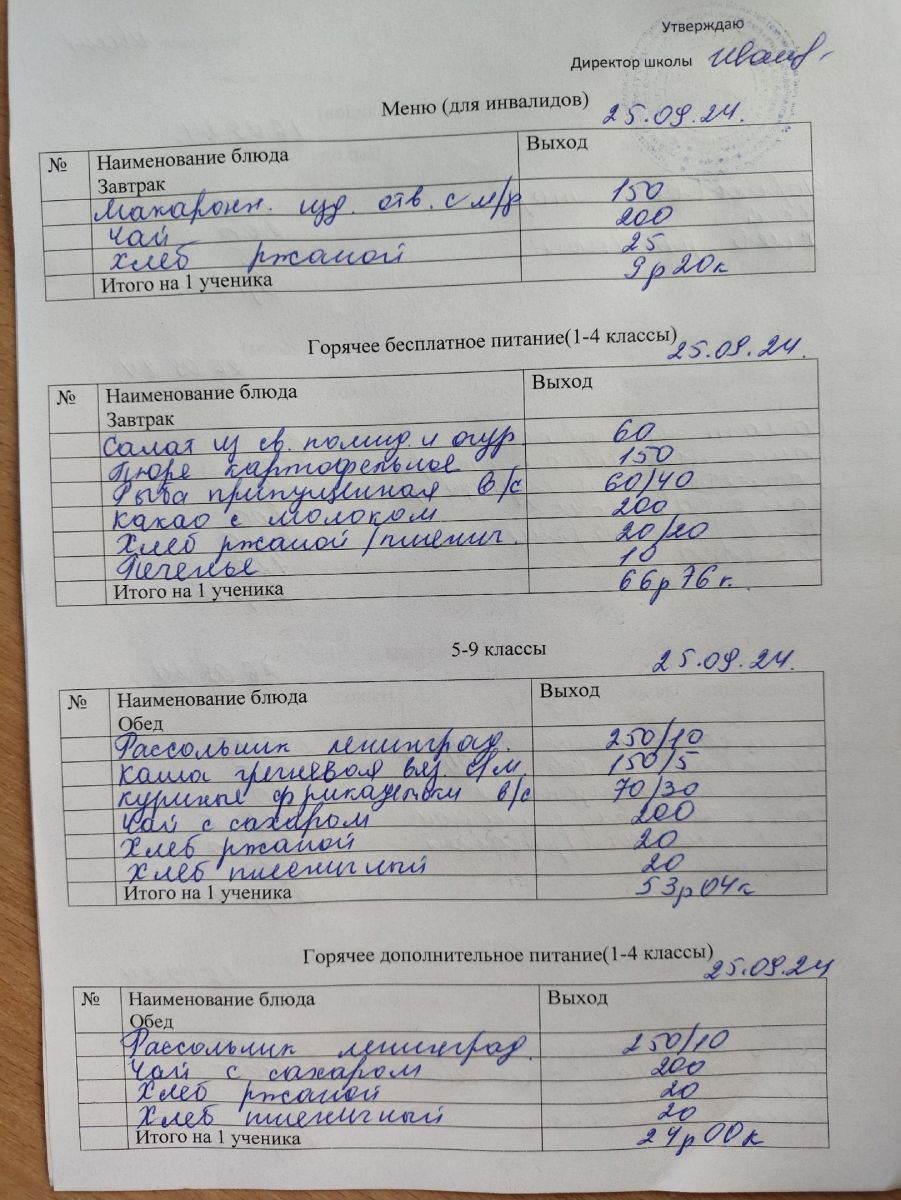 Утверждаю
Директор школы
Меню (для инвалидов)
25.09.24.
№ Наименование блюда Выход
Завтрак
Макаронн. изд. отв. с м/д 150
Чай 200
Хлеб ржаной 25
Итого на 1 ученика 9р20к
Горячее бесплатное питание(1-4 классы)
25.09.24.
№ Наименование блюда Выход
Завтрак
Салат из св. помид. и огур 60
Пюре картофельное 150
Рыба припущенная в/с 60/40
Какао с молоком 200
Хлеб ржаной/пшенич. 20/20
Печенье 10
Итого на 1 ученика 66р76к.
5-9 классы
25.09.24.
№ Наименование блюда Выход
Обед
Рассольник ленинград. 250/10
Каша гречневая вяз. с/м. 150/5
Куриные фрикадельки в/с 70/30
Чай с сахаром 200
Хлеб ржаной 20
Хлеб пшеничный 20
Итого на 1 ученика 53р04к
Горячее дополнительное питание(1-4 классы)
25.09.24
№ Наименование блюда Выход
Обед
Рассольник ленинград. 250/10
Чай с сахаром 200
Хлеб ржаной 20
Хлеб пшеничный 20
Итого на 1 ученика 24р00к